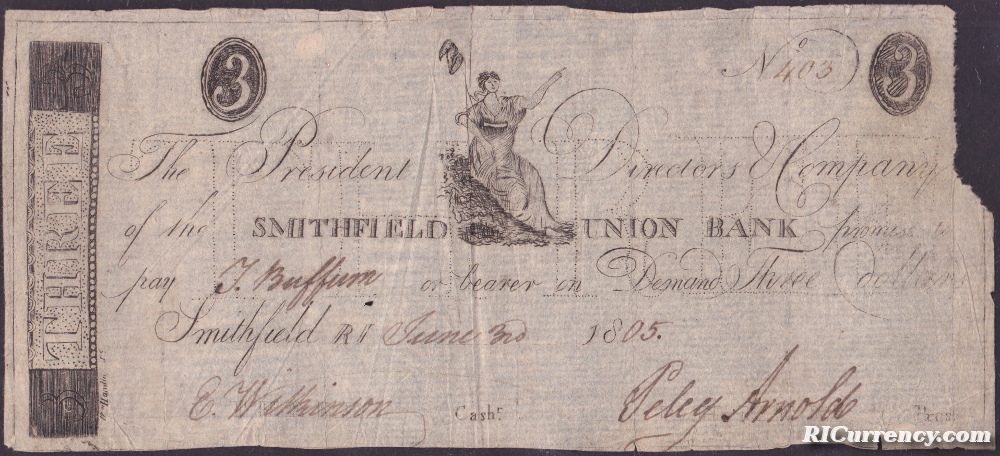 3
No 403
3
THREE
The President Directors & Company
of the SMITHFIELD UNION BANK promise to
pay T. Buffum or bearer on Demand Three dollars
Smithfield RI June 3rd 1805.
E. Wilkinson Cashr Peleg Arnold Prest
RICurrency.com